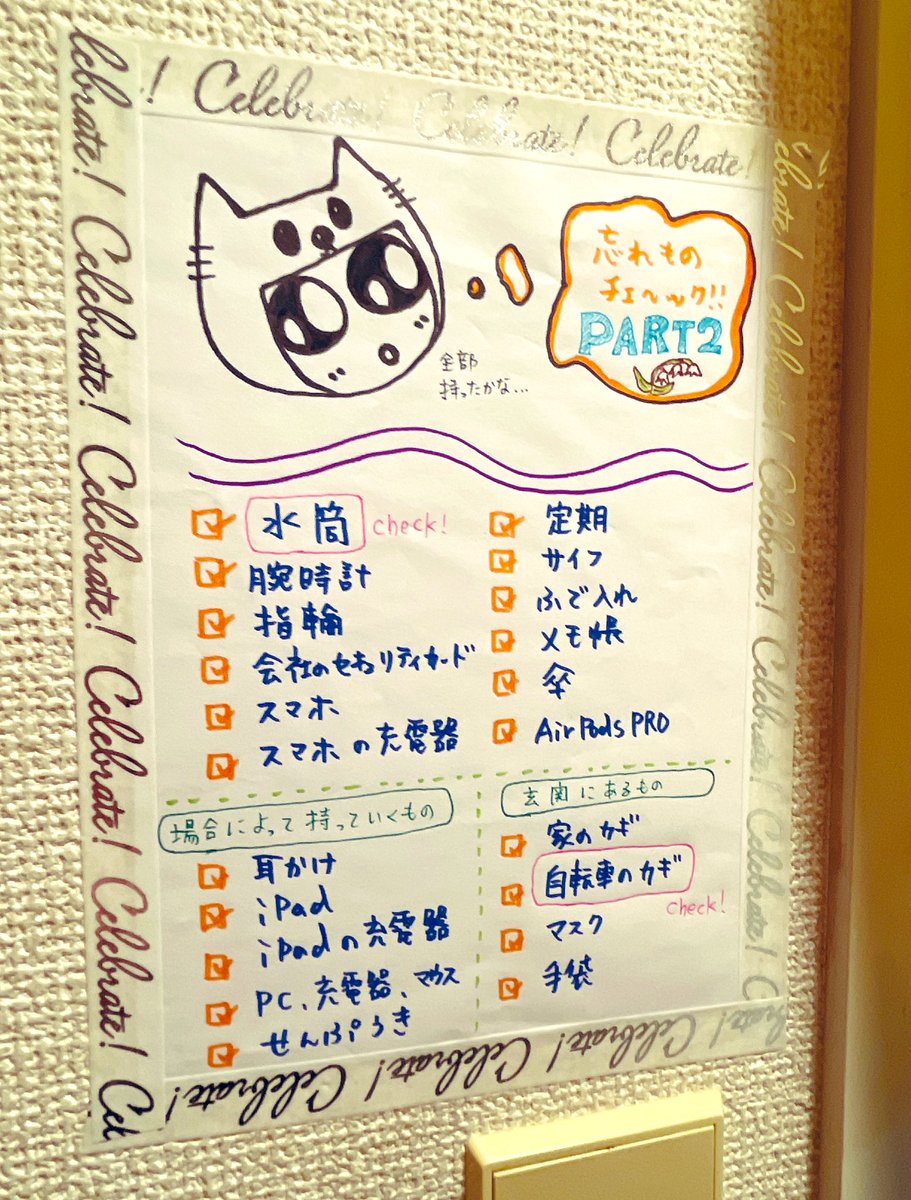 ! Celebrate! Celebrate! Celebrate!
lebrate! Celebrate! Celebrate! Celebrate! Celebrate! Cel
ebrate! Celebrate! Celebrate! Celebrate! Celebrate! C
忘れもの
チェック!!
PART2
全部
持ったかな...
水筒 check!
腕時計
指輪
会社のセキュリティカード
スマホ
スマホの充電器
定期
サイフ
ふで入れ
メモ帳
傘
AirPods PRO
場合によって持っていくもの
耳かけ
iPad
iPadの充電器
PC、充電器、マウス
せんぷうき
玄関にあるもの
家のカギ
自転車のカギ
check!
マスク
手袋
! Celebrate! Celebrate! Celebrate! Celebrate!